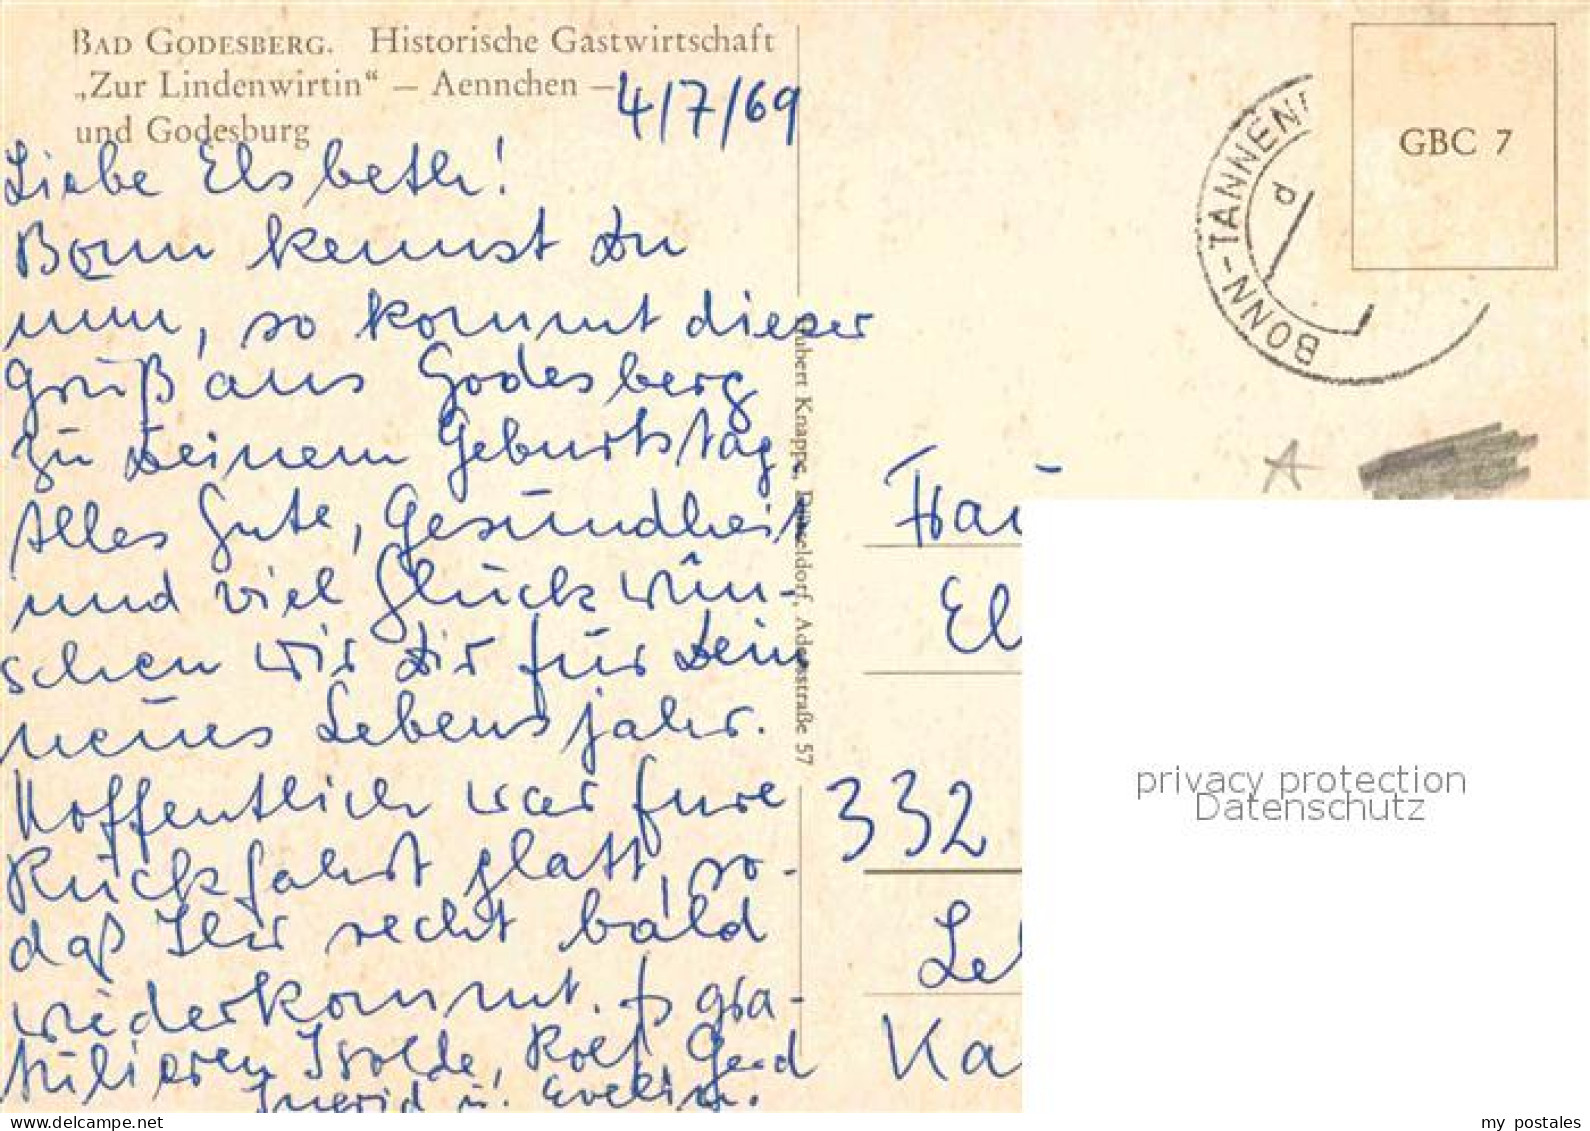 BAD GODESBERG. Historische Gastwirtschaft
„Zur Lindenwirtin“ – Aennchen –
und Godesburg
4/7/69
Liebe Elsbeth!
Bonn kennst Du
nun, so kommt dieser
Gruß aus Godesberg
zu Deinem Geburtstag
Alles Gute, Gesundheit
und viel Glück wün-
schen wir Dir für Dein
neues Lebensjahr.
Hoffentlich war Eure
Rückfahrt glatt, so-
daß Ihr recht bald
wiederkommt. Es gra-
tulieren Isolde, Rolf, Gerd
Ingrid u. Evelin.
Hubert Knappe, Düsseldorf, Adersstraße 57
BONN-TANNEN
d
GBC 7
A
Frau
El
332
Le
Ka
privacy protection
Datenschutz
my postales
www.delcampe.net